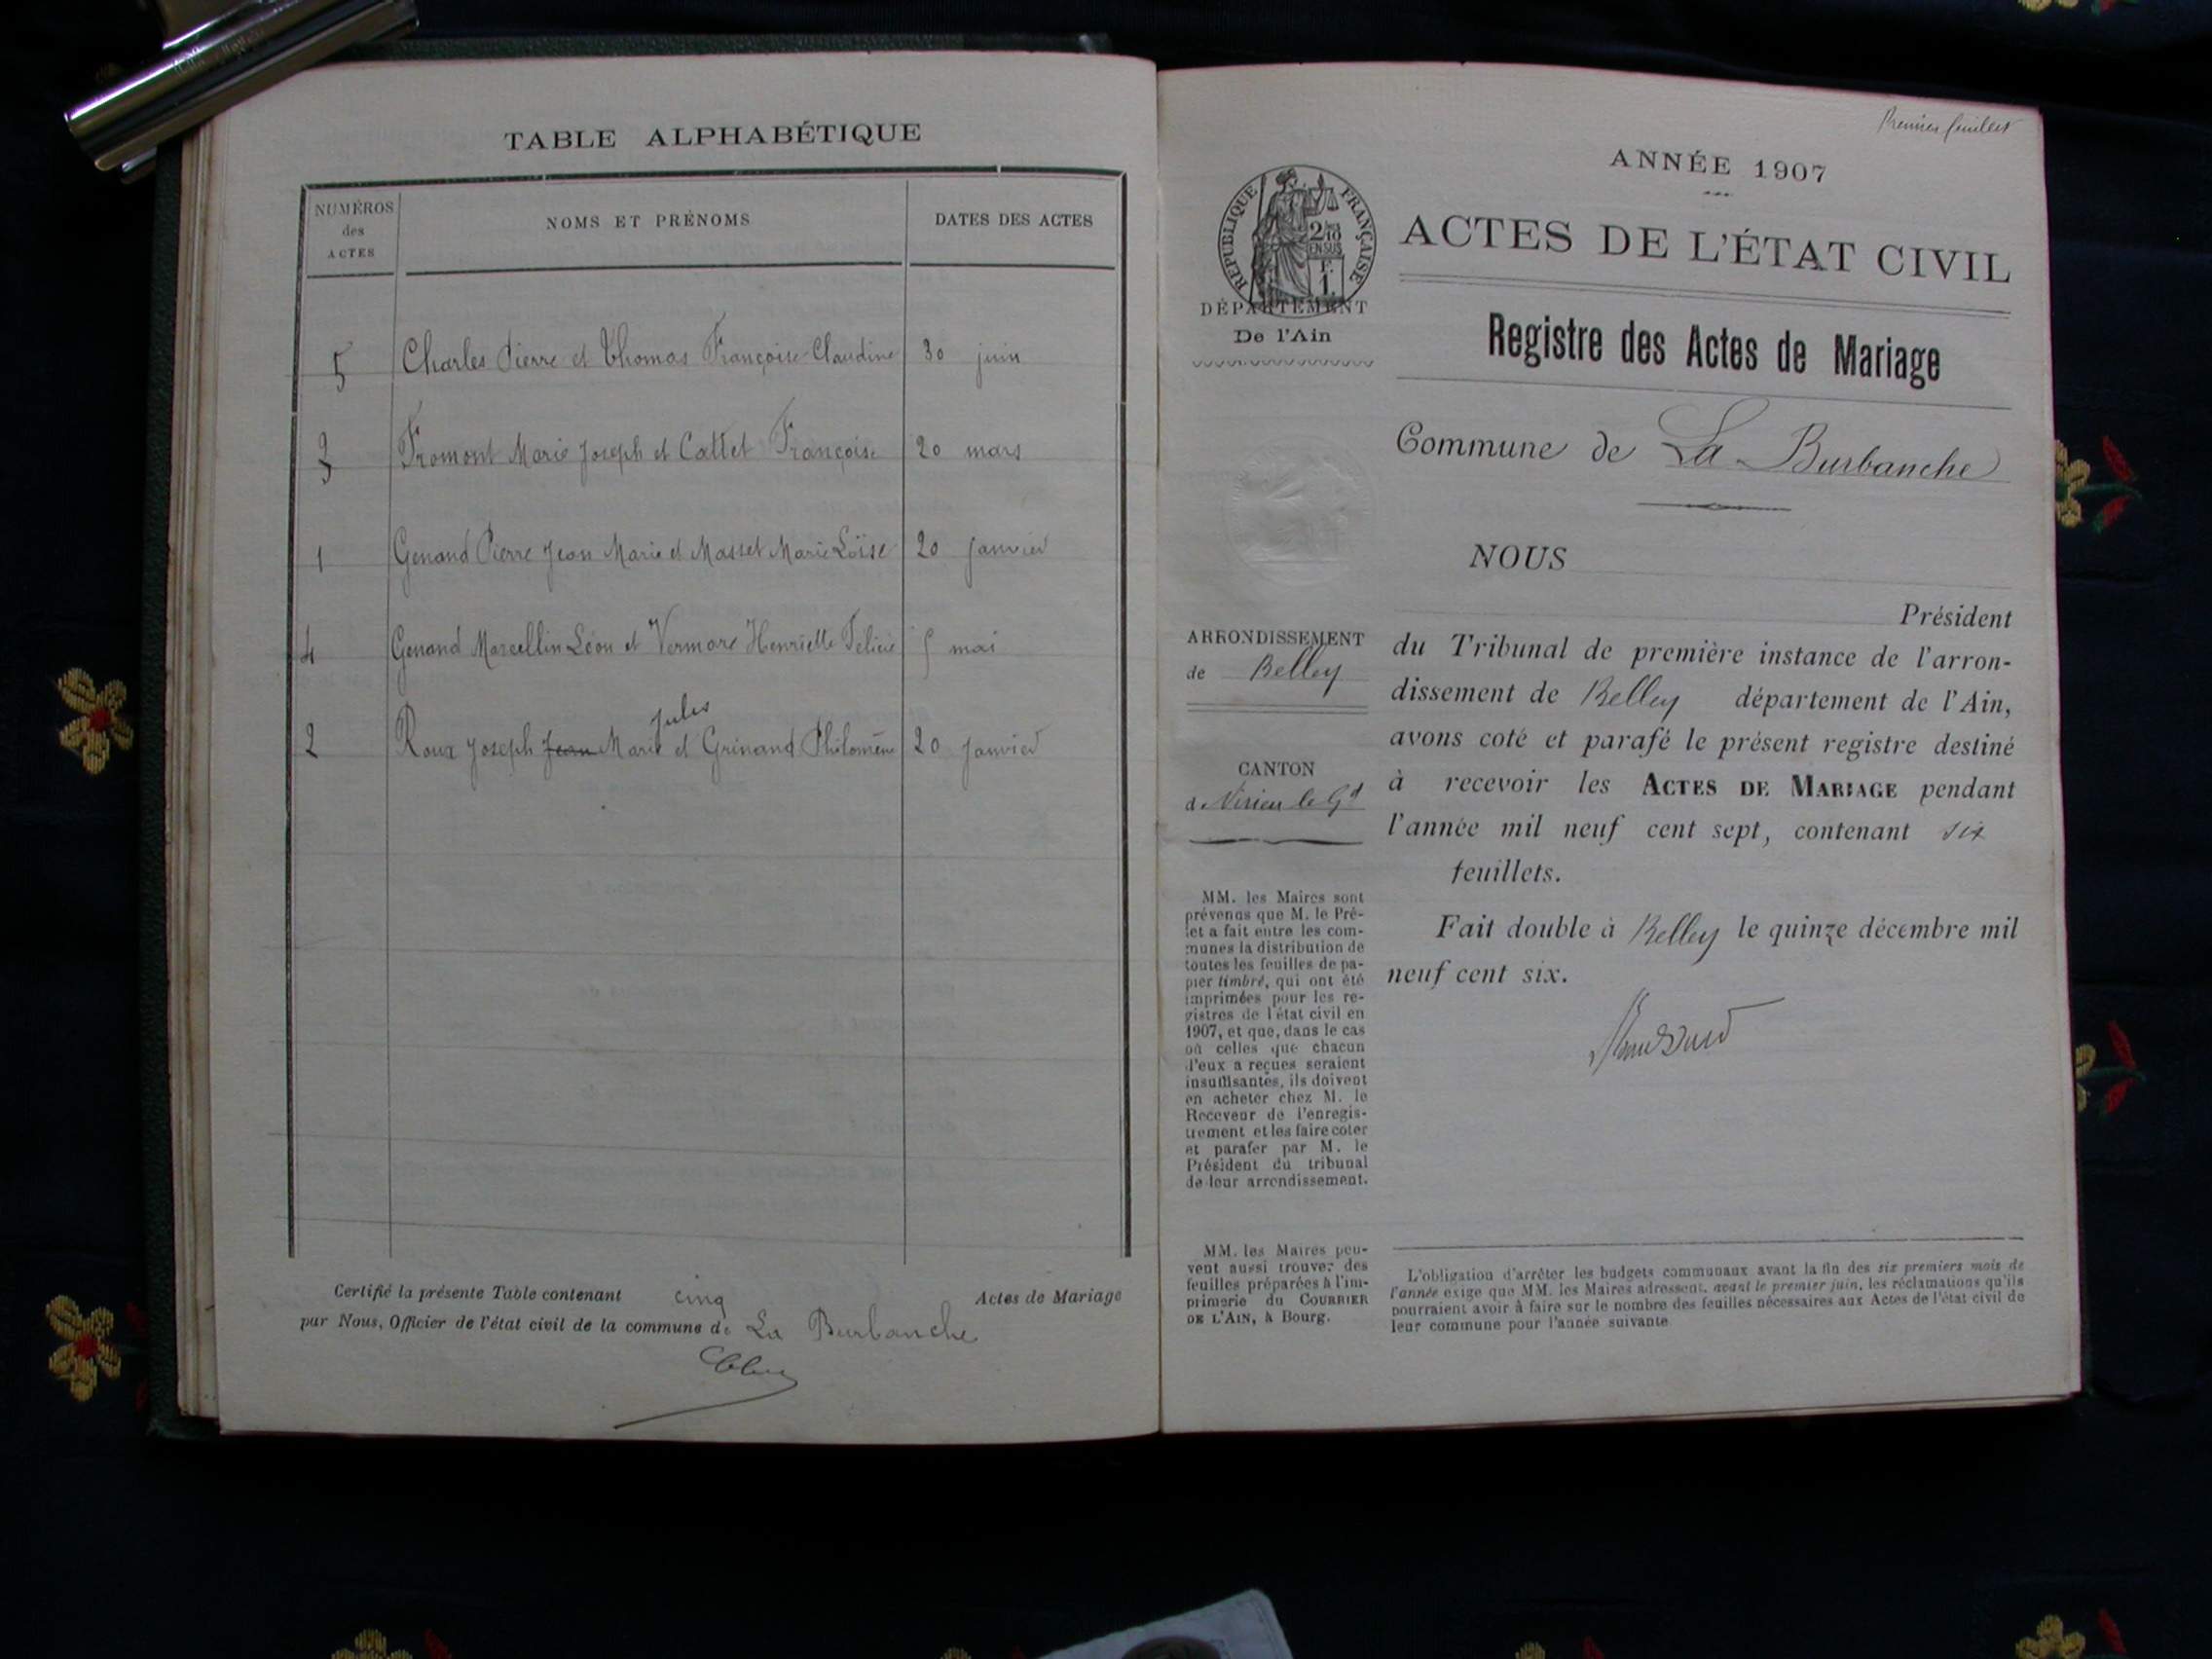 TABLE ALPHABÉTIQUE
NUMÉROS des ACTES
NOMS ET PRÉNOMS
DATES DES ACTES
5 Charles Pierre et Thomas Françoise Claudine 30 juin
3 Fromont Marie Joseph et Cattet Françoise 20 mars
1 Genand Pierre Jean Marie et Masset Marie Loïse 20 janvier
4 Genand Marcellin Léon et Vermare Henriette Félicie 5 mai
Jules
2 Roux Joseph Jean Marie et Grinand Philomène 20 janvier
Certifié la présente Table contenant cinq Actes de Mariage
par Nous, Officier de l'état civil de la commune de La Burbanche
Premier feuillet
ANNÉE 1907
RÉPUBLIQUE FRANÇAISE
2/10 EN SUS
F. 1.
DÉPARTEMENT
De l'Ain
ACTES DE L'ÉTAT CIVIL
Registre des Actes de Mariage
Commune de La Burbanche
NOUS
Président
du Tribunal de première instance de l'arron-
dissement de Belley département de l'Ain,
avons coté et parafé le présent registre destiné
à recevoir les ACTES DE MARIAGE pendant
l'année mil neuf cent sept, contenant six
feuillets.
Fait double à Belley le quinze décembre mil
neuf cent six.
ARRONDISSEMENT
de Belley
CANTON
de Virieu le Gd
MM. les Maires sont
prévenus que M. le Pré-
fet a fait entre les com-
munes la distribution de
toutes les feuilles de pa-
pier timbré, qui ont été
imprimées pour les re-
gistres de l'état civil en
1907, et que, dans le cas
où celles que chacun
d'eux a reçues seraient
insuffisantes, ils doivent
en acheter chez M. le
Receveur de l'enregis-
trement et les faire coter
et parafer par M. le
Président du tribunal
de leur arrondissement.
MM. les Maires peu-
vent aussi trouver des
feuilles préparées à l'im-
primerie du COURRIER
DE L'AIN, à Bourg.
L'obligation d'arrêter les budgets communaux avant la fin des six premiers mois de
l'année exige que MM. les Maires adressent, avant le premier juin, les réclamations qu'ils
pourraient avoir à faire sur le nombre des feuilles nécessaires aux Actes de l'état civil de
leur commune pour l'année suivante